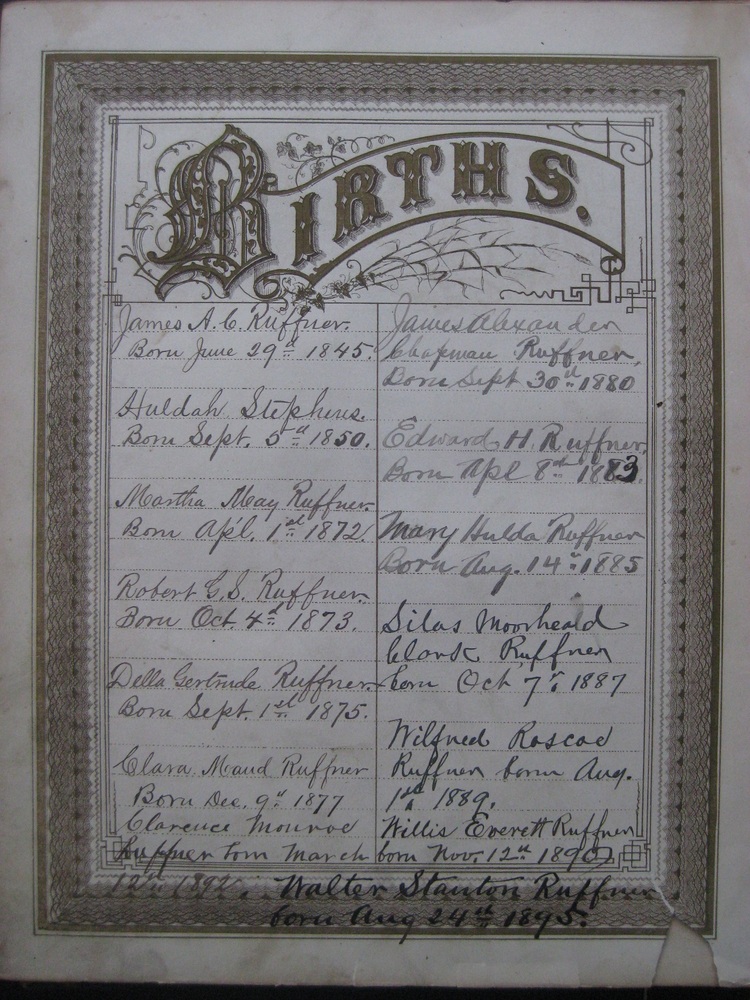 BIRTHS.
James A. C. Ruffner.
Born June 29th 1845.
Huldah Stephens.
Born Sept. 5th 1850.
Martha May Ruffner.
Born Apl. 1st 1872
Robert G. S. Ruffner.
Born Oct. 4th 1873.
Della Gertrude Ruffner.
Born Sept. 1st 1875.
Clara Maud Ruffner
Born Dec. 9th 1877
Clarence Monroe
Ruffner born March
12th 1892.
James Alexander
Chapman Ruffner,
Born Sept 30th 1880
Edward H. Ruffner,
Born Apl 8th 1883.
Mary Hulda Ruffner
Born Aug. 14th 1885
Silas Moorheald
Clark Ruffner
born Oct 7th 1887
Wilfred Roscoe
Ruffner born Aug.
1st 1889.
Willis Everett Ruffner
born Nov. 12th 1890
Walter Stanton Ruffner
born Aug 24th 1895.